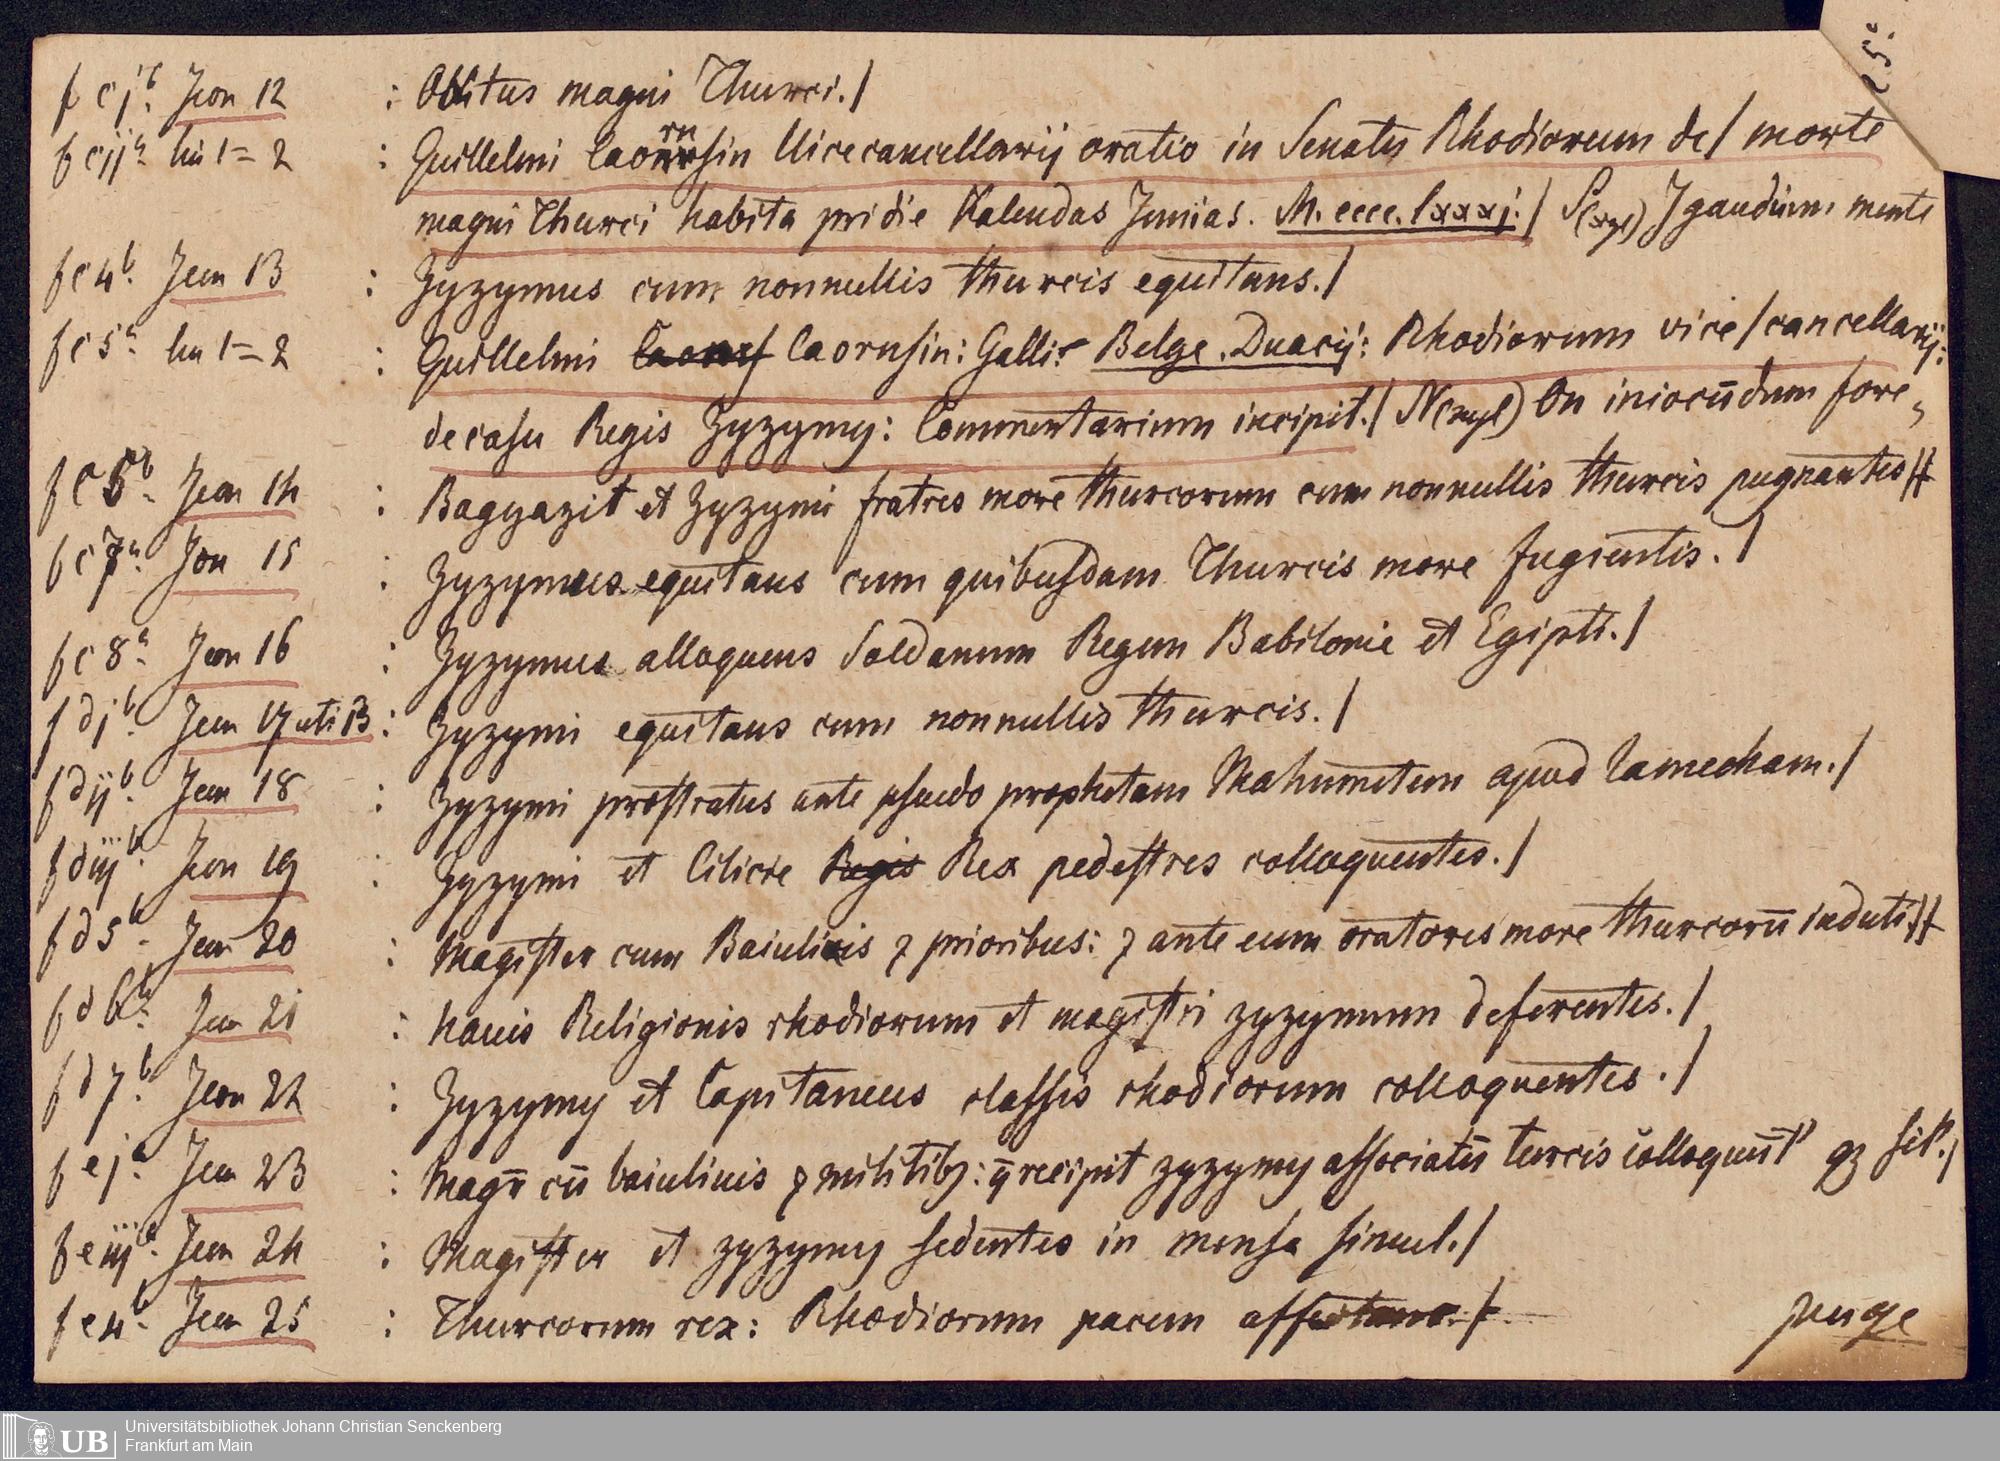 f c jᵇ. Icon 12 : Obitus magni Thurci./
f c ijᵃ. lin 1=2 : Guillelmi Caorursin Uicecancellarij oratio in Senatu Rhodiorum de/ morte
magni Thurci habita pridie Kalendas Junias. M. cccc. lxxxj./ S(xyl) I gaudium mente
f c 4ᵇ. Icon 13 : Zyzymus cum nonnullis thurcis equitans./
f c 5ᵃ. lin 1=2 : Guillelmi Caorusin: Galli: Belge. Duacij: Rhodiorum vice/cancellarij:
de casu Regis Zyzymy: Commentarium incipit./ N(xyl) On iniocūdum fore,
f c 5ᵇ. Icon 14 : Bagyazit et Zyzymi fratres more thurcorum cum nonnullis thurcis pugnantes//
f c 7ᵃ. Icon 15 : Zyzymus equitans cum quibusdam Thurcis more fugientis./
f c 8ᵃ. Icon 16 : Zyzymus alloquens Soldanum Regem Babilonie et Egipti./
f d jᵇ. Icon 17 uti 13 : Zyzymi equitans cum nonnullis thurcis./
f d ijᵇ. Icon 18 : Zyzymi prostratus ante pseudo prophetam Mahumetem apud Lamecham./
f d iijᵇ. Icon 19 : Zyzymi et Cilicie Regis Rex pedestres colloquentes./
f d 5ᵇ. Icon 20 : Magister cum Baiuliuis & prioribus: & ante eum oratores more thurcorū induti//
f d 6ᵇ. Icon 21 : Nauis Religionis rhodiorum et magistri zyzymum deferentes./
f d 7ᵇ. Icon 22 : Zyzymy et Capitaneus classis rhodiorum colloquentes./
f e jᵃ. Icon 23 : Magr̄ cū baiuliuis & militibꝫ: q̄ recipit zyzymy associatū turcis colloquūt' qꝫ sil'./
f e iijᵃ. Icon 24 : Magister et zyzymy sedentes in mensa simul./
f e 4ᵇ. Icon 25 : Thurcorum rex: Rhodiorum pacem affectans./
Universitätsbibliothek Johann Christian Senckenberg
UB Frankfurt am Main